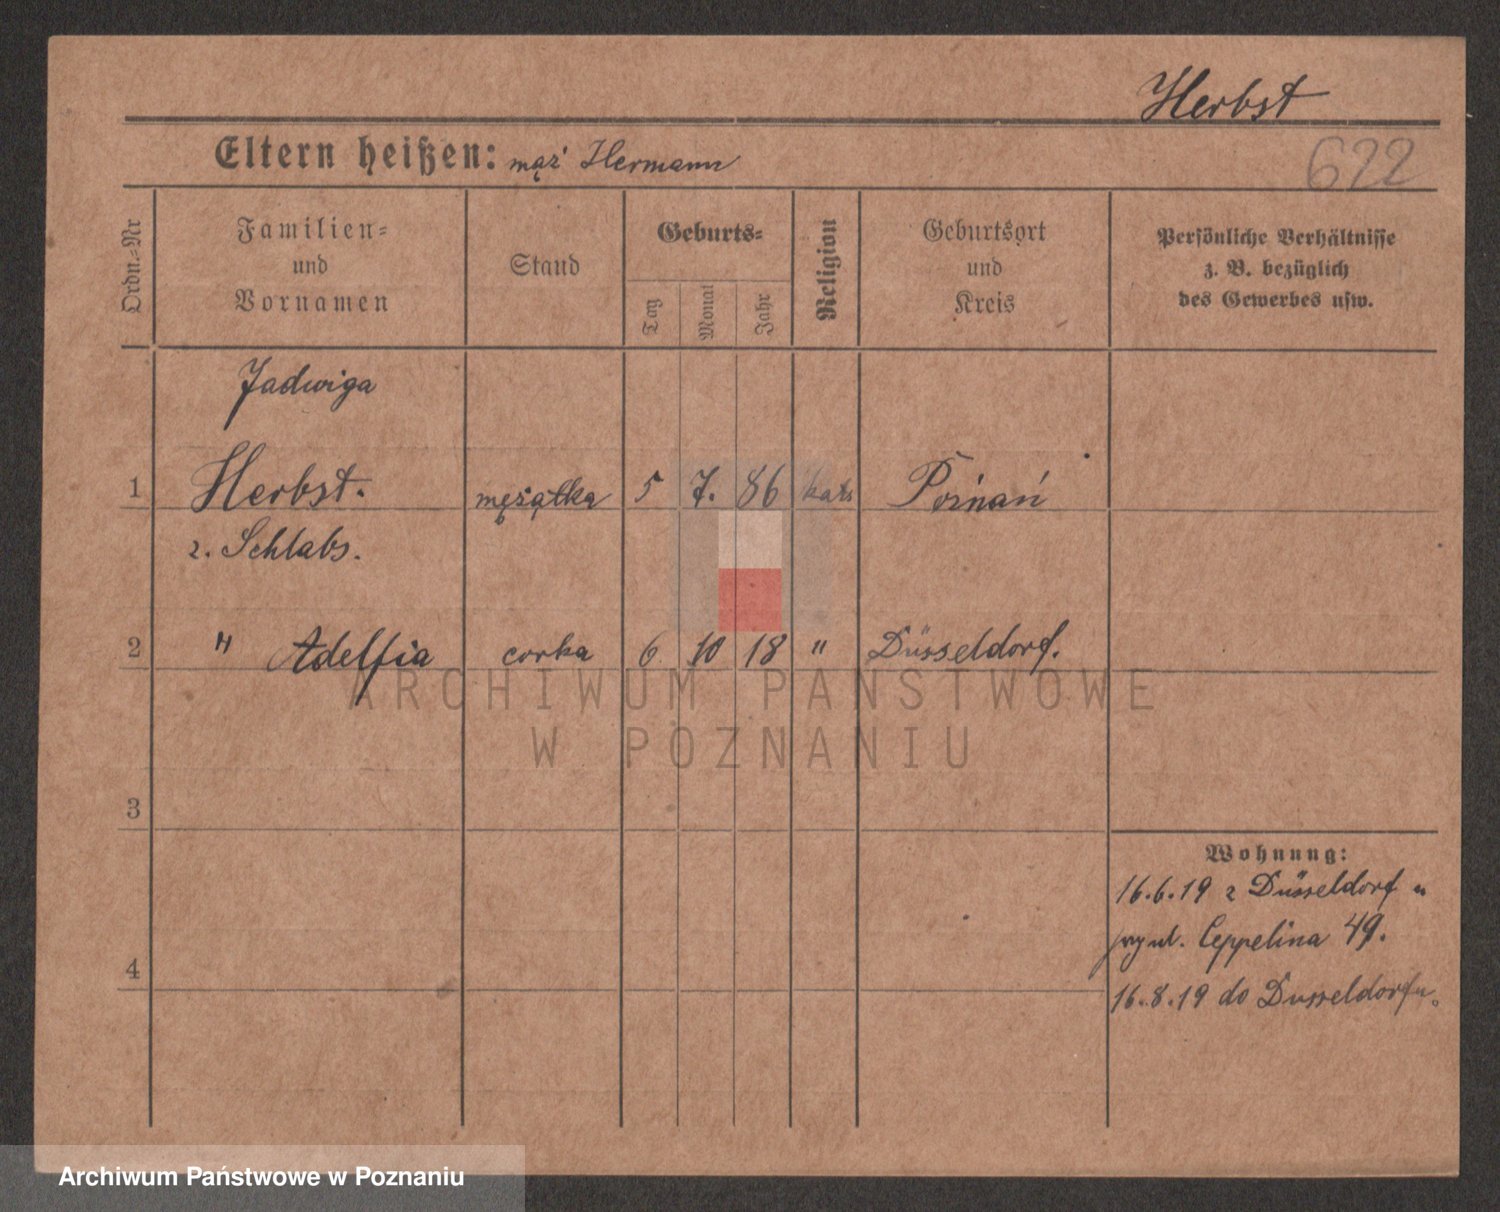 Herbst
622
Eltern heißen: mąż Hermann
Ordn.-Nr
Familien-
und
Vornamen
Stand
Geburts-
Tag
Monat
Jahr
Religion
Geburtsort
und
Kreis
Persönliche Verhältnisse
z. B. bezüglich
des Gewerbes usw.
Jadwiga
1 Herbst. mężatka 5 7. 86 kat. Poznań
z. Schlabs.
2 " Adelfia corka 6 10 18 " Düsseldorf.
ARCHIWUM PAŃSTWOWE
W POZNANIU
3
Wohnung:
16.6.19 z Düsseldorf
Ceppelina 49.
4
16.8.19 do Dusseldorfu.
Archiwum Państwowe w Poznaniu